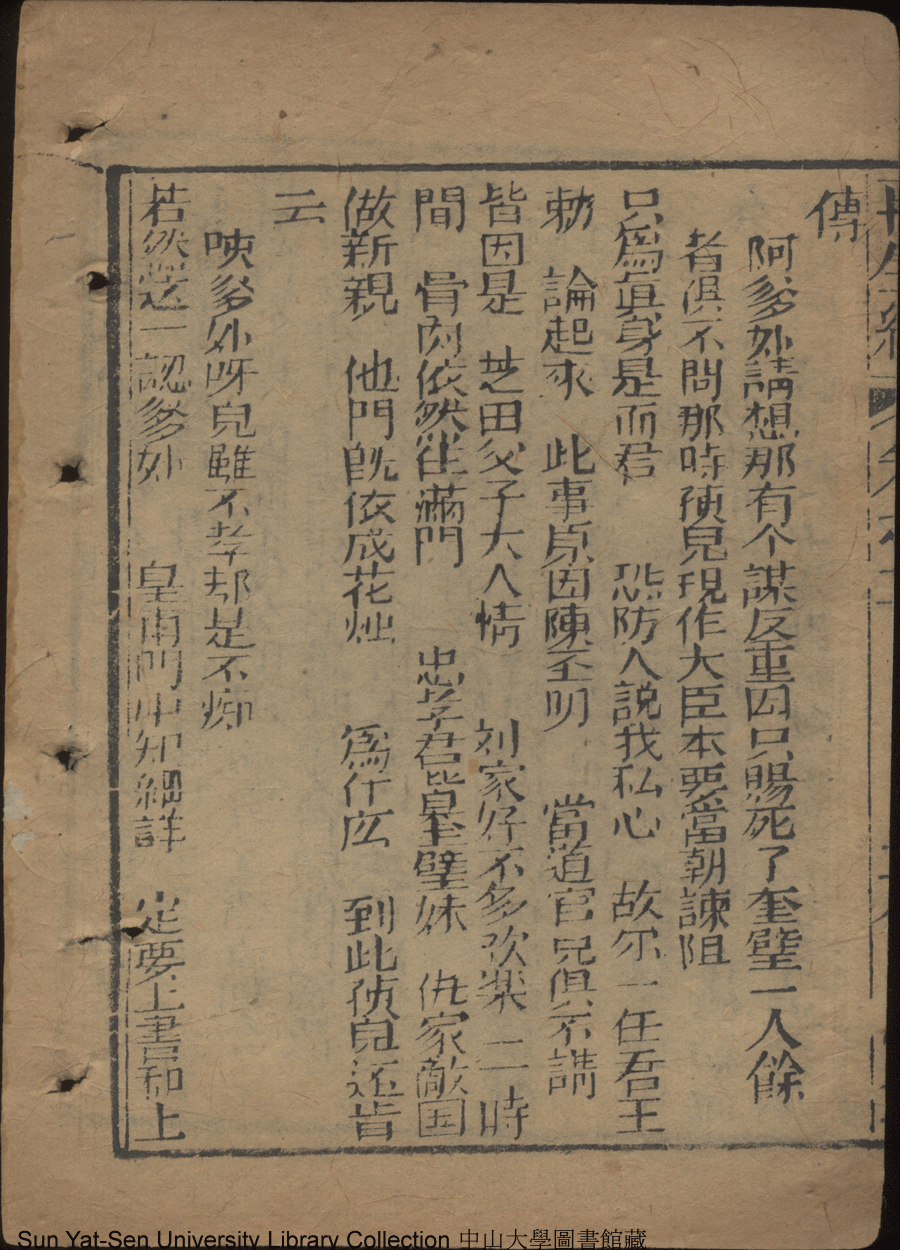 傳
阿爹外請想那有个謀反重囚只賜死了奎璧一人餘
者俱不問那時孩兒現作大臣本要當朝諫阻
只為真身是而君　恐防人說我私心　故尔一任君王
勅　論起來　此事原因陳至明　當道官兒俱不講
皆因是　芝田父子大人情　刘家好不多欢楽　一時
間　骨肉依然隹滿門　忠孝君皇璧妹　仇家敵国
做新親　他門既依成花烛　為什広　到此孩兒还皆
云
唤爹外呀兒雖不孝却是不痴
若然一認爹外　皇甫門中知細詳　定要上書和上
Sun Yat-Sen University Library Collection 中山大學圖書館藏